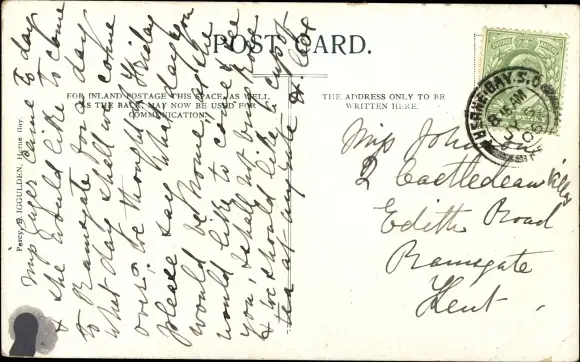 POST CARD.
FOR INLAND POSTAGE THIS SPACE, AS WELL
AS THE BACK, MAY NOW BE USED FOR
COMMUNICATION.
THE ADDRESS ONLY TO BE
WRITTEN HERE.
Percy IGGULDEN, Herne Bay.
Miss came to day
& she would like to come
to Ramsgate for a day
what day shall we come
over, we thought Friday
please say what day you
would be home, as she
would like to come & see
you, I shall not bring Rose
& we should like a cup of
tea at any rate
Miss John
2 Castledean Villas
Edith Road
Ramsgate
Kent.
HERNE BAY. S.O.